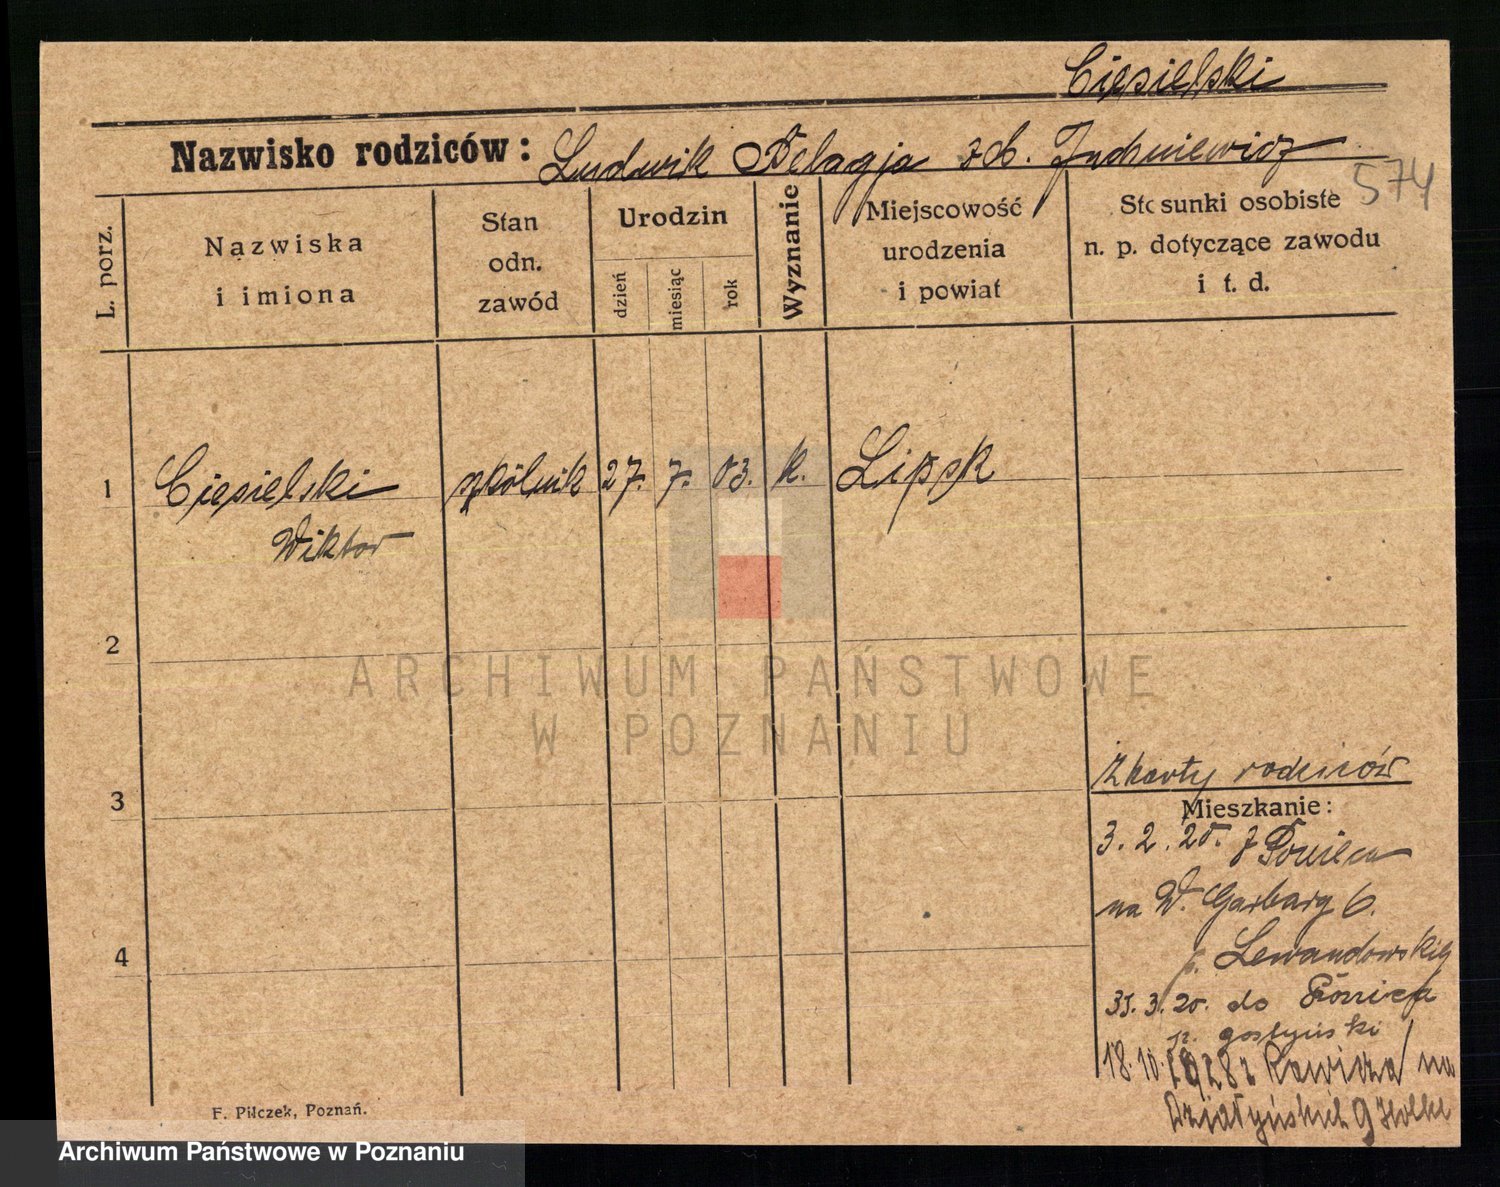 Ciesielski
Nazwisko rodziców: Ludwik Pelagja
574
L. porz.
Nazwiska
i imiona
Stan
odn.
zawód
Urodzin
dzień
miesiąc
rok
Wyznanie
Miejscowość
urodzenia
i powiat
Stosunki osobiste
n. p. dotyczące zawodu
i t. d.
1 Ciesielski szkólnik 27. 7. 03. k. Lipsk
Wiktor
2
3
4
z karty rodziców
Mieszkanie:
3. 2. 20. z
na W. Garbary 6.
p. Lewandowskiej
31. 3. 20. do
p. gostyński
18. 10. 1928 z Rawicza na
9
F. Pilczek, Poznań.
ARCHIWUM PAŃSTWOWE
W POZNANIU
Archiwum Państwowe w Poznaniu